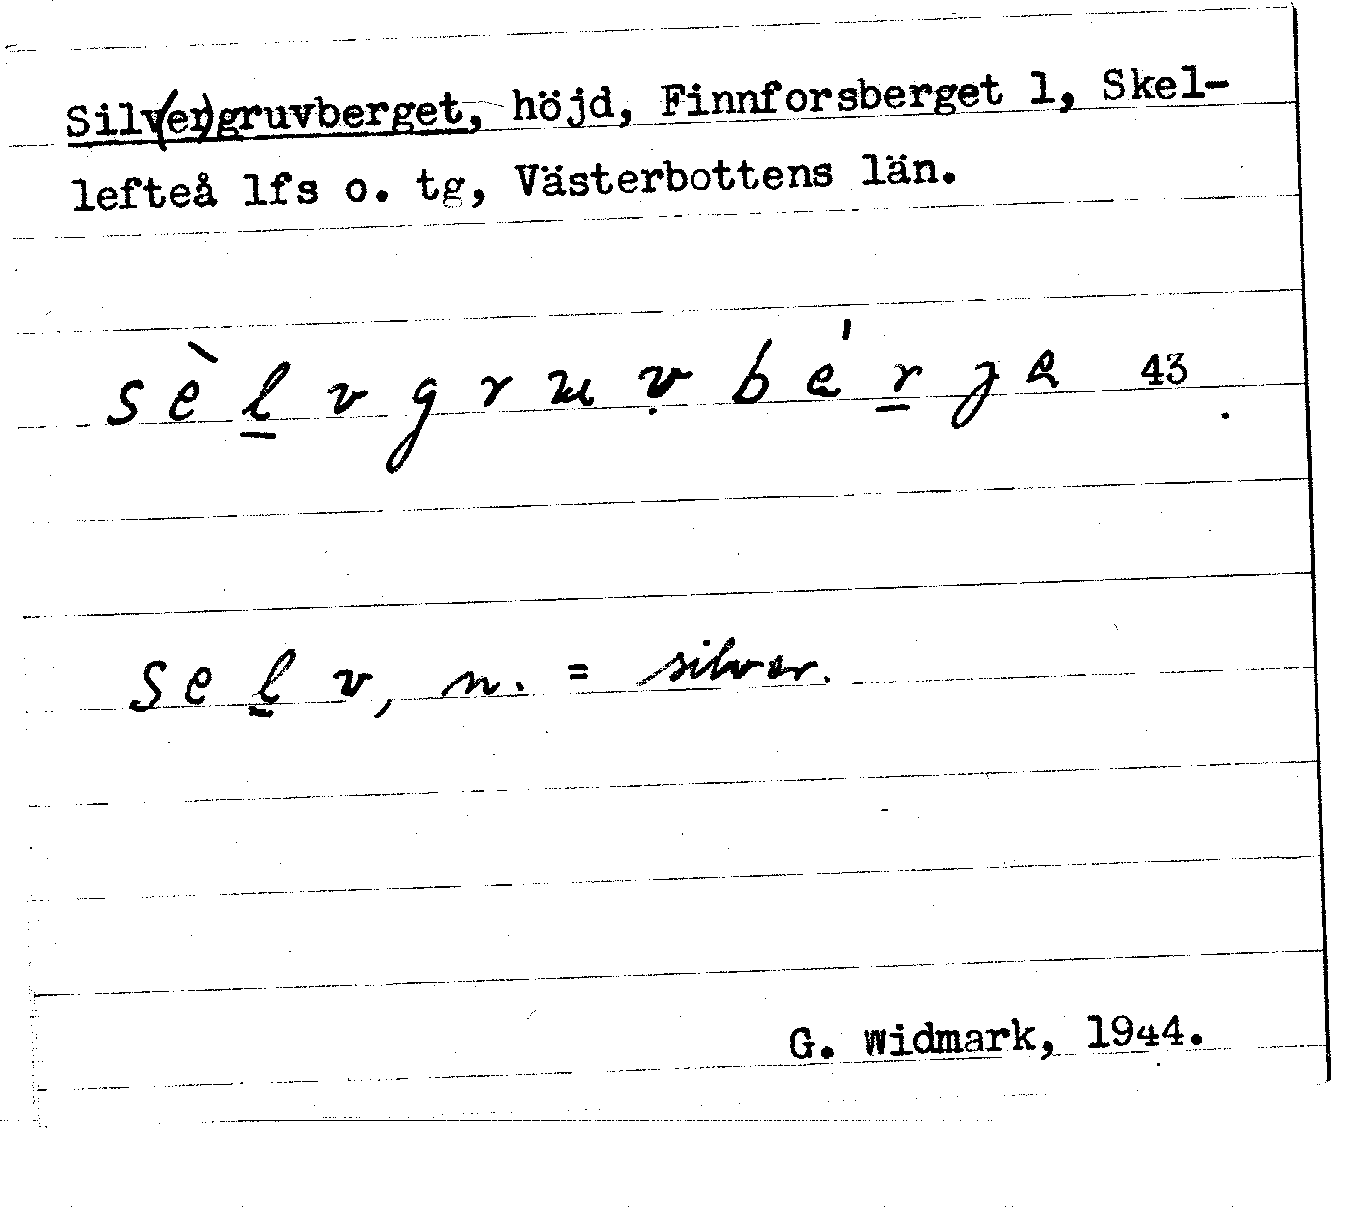 Silv(er)gruvberget, höjd, Finnforsberget 1, Skel-
lefteå lfs o. tg, Västerbottens län.
sèl̲vgruv̥bér̲je 43
sel̲v, n. = silver.
G. Widmark, 1944.